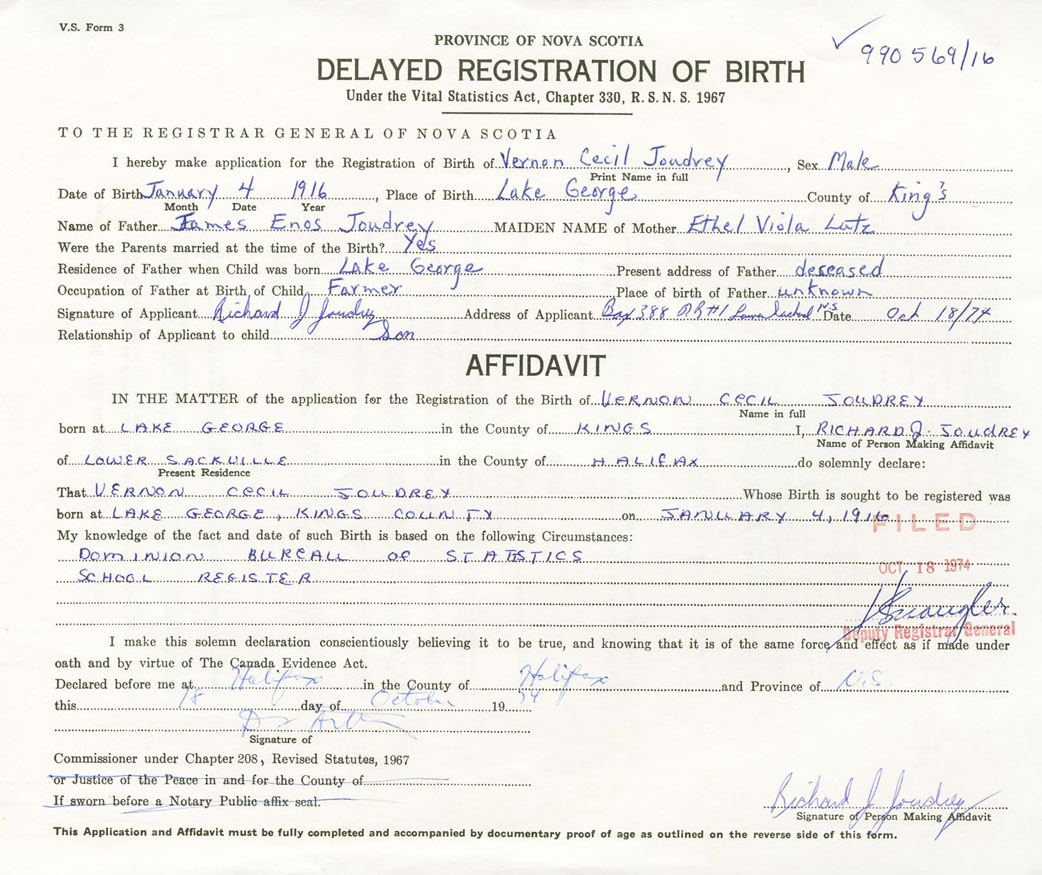 V.S. Form 3
990 569/16
PROVINCE OF NOVA SCOTIA
DELAYED REGISTRATION OF BIRTH
Under the Vital Statistics Act, Chapter 330, R.S.N.S. 1967
TO THE REGISTRAR GENERAL OF NOVA SCOTIA
I hereby make application for the Registration of Birth of Vernon Cecil Joudrey, Sex Male
Print Name in full
Date of Birth January 4 1916, Place of Birth Lake George County of King's
Month Date Year
Name of Father James Enos Joudrey MAIDEN NAME of Mother Ethel Viola Lutz
Were the Parents married at the time of the Birth? Yes
Residence of Father when Child was born Lake George Present address of Father deseased
Occupation of Father at Birth of Child Farmer Place of birth of Father unknown
Signature of Applicant Richard J Joudrey Address of Applicant Box 388 RR#1 Lower Sackville NS Date Oct 18/74
Relationship of Applicant to child Son
AFFIDAVIT
IN THE MATTER of the application for the Registration of the Birth of VERNON CECIL JOUDREY
Name in full
born at LAKE GEORGE in the County of KINGS I, RICHARD J. JOUDREY
Name of Person Making Affidavit
of LOWER SACKVILLE in the County of HALIFAX do solemnly declare:
Present Residence
That VERNON CECIL JOUDREY Whose Birth is sought to be registered was
born at LAKE GEORGE, KINGS COUNTY on JANUARY 4, 1916
FILED
My knowledge of the fact and date of such Birth is based on the following Circumstances:
DOMINION BUREAU OF STATISTICS
OCT 18 1974
SCHOOL REGISTER
Deputy Registrar General
I make this solemn declaration conscientiously believing it to be true, and knowing that it is of the same force and effect as if made under
oath and by virtue of The Canada Evidence Act.
Declared before me at Halifax in the County of Halifax and Province of N.S.
this 18 day of October 19 74
Signature of
Commissioner under Chapter 208, Revised Statutes, 1967
or Justice of the Peace in and for the County of
If sworn before a Notary Public affix seal.
Richard J Joudrey
Signature of Person Making Affidavit
This Application and Affidavit must be fully completed and accompanied by documentary proof of age as outlined on the reverse side of this form.